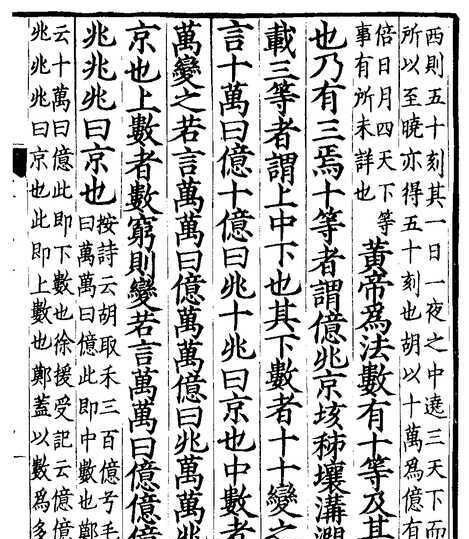 西則五十刻其一日一夜之中遶三天下而
所以至曉亦得五十刻也胡以十萬為億有
倍日月四天下等
事有所未詳也
黃帝為法數有十等及其
也乃有三焉十等者謂億兆京垓秭壤溝澗
載三等者謂上中下也其下數者十十變之
言十萬曰億十億曰兆十兆曰京也中數者
萬變之若言萬萬曰億萬萬億曰兆萬萬兆
京也上數者數窮則變若言萬萬曰億億億
兆兆兆曰京也
按詩云胡取禾三百億兮毛
曰萬萬曰億此即中數也鄭
云十萬曰億此即下數也徐援受記云億億
兆兆兆曰京也此即上數也鄭蓋以數為多